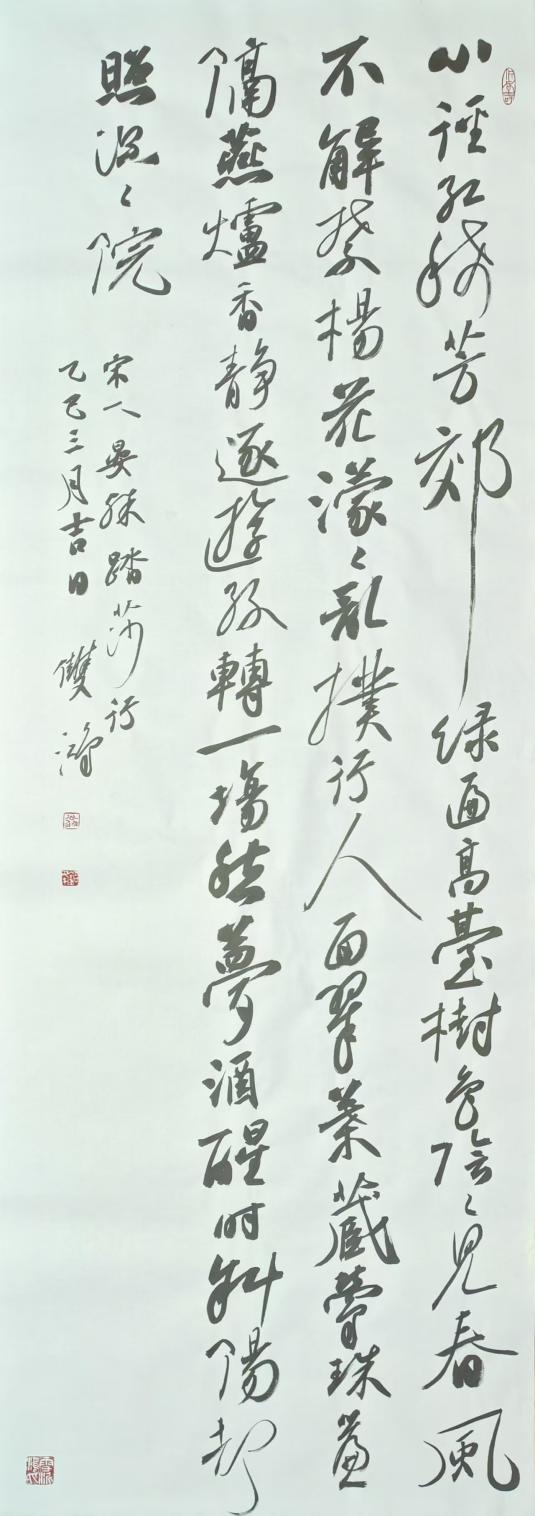 小徑紅稀芳郊绿遍高臺樹色陰々見春風
不解禁楊花濛々亂撲行人面翠葉藏鶯珠簾
隔燕爐香静逐遊絲轉一場愁夢酒醒時斜陽却
照深々院
宋人晏殊踏莎行
乙巳三月吉日 雙濤